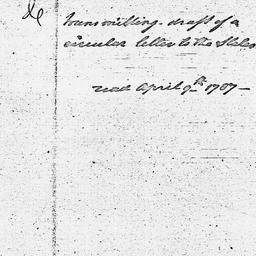 transmitting draft of a
circular letter to the States
read April 9th 1787 —